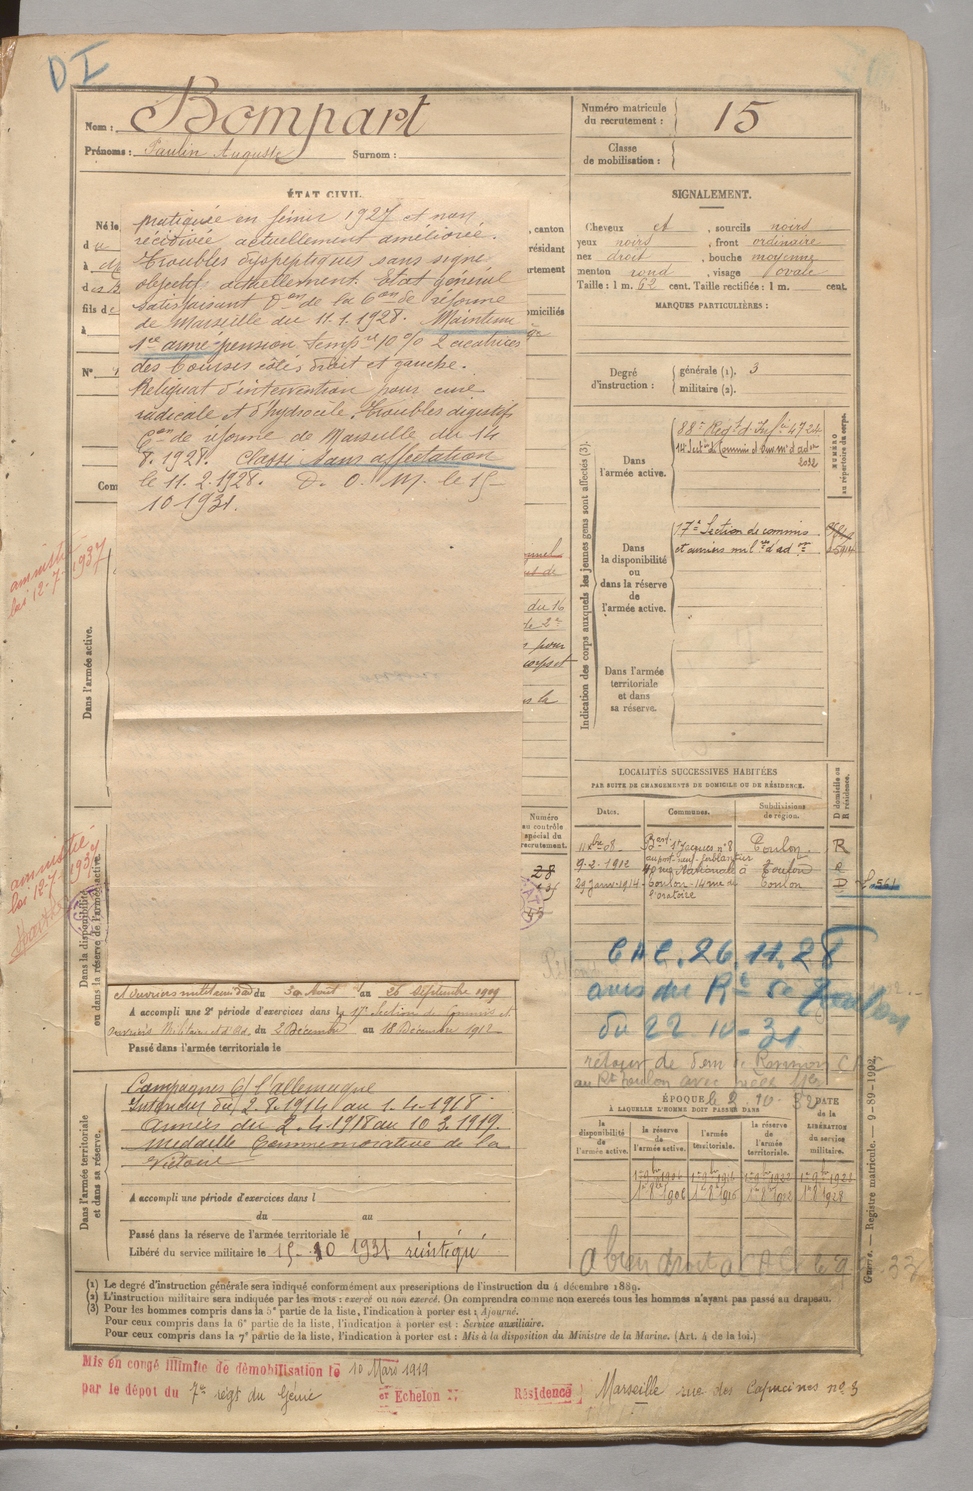 DI
Nom : Bompart
Prénoms : Paulin Auguste Surnom :
Numéro matricule du recrutement : 15
Classe de mobilisation :
ÉTAT CIVIL.
Né le
, canton
résidant
domiciliés
fils de
à
N°
pratiquée en février 1927 et non
récidivée actuellement améliorée.
Troubles dyspeptiques sans signe
objectifs actuellement. Etat général
satisfaisant Don de la Con de réforme
de Marseille du 11.1.1928. Maintenu
Sce armé pension temp re 10 % 2 cicatrices
des bourses côtés droit et gauche.
Reliquat d'intervention pour cure
radicale et d'hydrocèle. Troubles digestifs
Con de réforme de Marseille du 14
8.1928. Classé sans affectation
le 11.2.1928. D. O. M. le 15-
10 1931.
SIGNALEMENT.
Cheveux et , sourcils noirs
yeux noirs , front ordinaire
nez droit , bouche moyenne
menton rond , visage ovale
Taille : 1 m. 62 cent. Taille rectifiée : 1 m. cent.
MARQUES PARTICULIÈRES :
Degré d'instruction : générale (1). 3
militaire (2).
Indication des corps auxquels les jeunes gens sont affectés (3).
NUMÉRO au répertoire du corps.
Dans l'armée active.
88e Régt d'Infie 4724
14e Secton de Commis et ouv. m. d'ad on
2032
Dans la disponibilité ou dans la réserve de l'armée active.
17e Section de commis
et ouvriers mil res d'ad on
Dans l'armée territoriale et dans sa réserve.
amnistié
loi 12-7-1937
Dans l'armée active.
amnistié
loi 12-7-1937
Dans la disponibilité ou dans la réserve de l'armée active.
du 16
de 2e
pour
corps et
Numéro au contrôle spécial du recrutement.
28
LOCALITÉS SUCCESSIVES HABITÉES
PAR SUITE DE CHANGEMENTS DE DOMICILE OU DE RÉSIDENCE.
Dates. Communes. Subdivisions de région. D domicile ou R résidence.
11 Xbre 08. Bard St Jacques n° 8 Toulon R
9-2-1912 40 rue Nationale à Toulon
29 Janvier 1914 Toulon-14 rue de l'oratoire Toulon D
561
CAC. 26.11.28
avis du Rt de Toulon
du 22 10-31
au Rt Toulon avec
le 2-10-32
et Ouvriers militaires d'ad du 30 Août au 26 Septembre 1909
A accompli une 2e période d'exercices dans le 17e Section de Commis et
ouvriers Militaires d'Ad. du 2 Décembre au 18 Décembre 1912
Passé dans l'armée territoriale le
Dans l'armée territoriale et dans sa réserve.
Campagnes C/ l'allemagne
Intérieur du 2.8.1914 au 1.4.1918
Armées du 2.4.1918 au 10.3.1919.
Médaille Commémorative de la
Victoire
A accompli une période d'exercices dans l
du au
Passé dans la réserve de l'armée territoriale le
Libéré du service militaire le 15-10 1931 réintégré
ÉPOQUE
À LAQUELLE L'HOMME DOIT PASSER DANS
la disponibilité de l'armée active. la réserve de l'armée active. l'armée territoriale. la réserve de l'armée territoriale. DATE de la LIBÉRATION du service militaire.
1er 8bre 1906 1er 8bre 1916 1er 8bre 1922 1er 8bre 1928
a bien droit a CAC le
Guerre. — Registre matricule. — 9-89-1902.
(1) Le degré d'instruction générale sera indiqué conformément aux prescriptions de l'instruction du 4 décembre 1889.
(2) L'instruction militaire sera indiquée par les mots : exercé ou non exercé. On comprendra comme non exercés tous les hommes n'ayant pas passé au drapeau.
(3) Pour les hommes compris dans la 5e partie de la liste, l'indication à porter est : Ajourné.
Pour ceux compris dans la 6e partie de la liste, l'indication à porter est : Service auxiliaire.
Pour ceux compris dans la 7e partie de la liste, l'indication à porter est : Mis à la disposition du Ministre de la Marine. (Art. 4 de la loi.)
Mis en congé illimité de démobilisation le 10 Mars 1919
par le dépôt du 7e régt du Génie er Echelon Résidence Marseille rue des Capucines n° 3